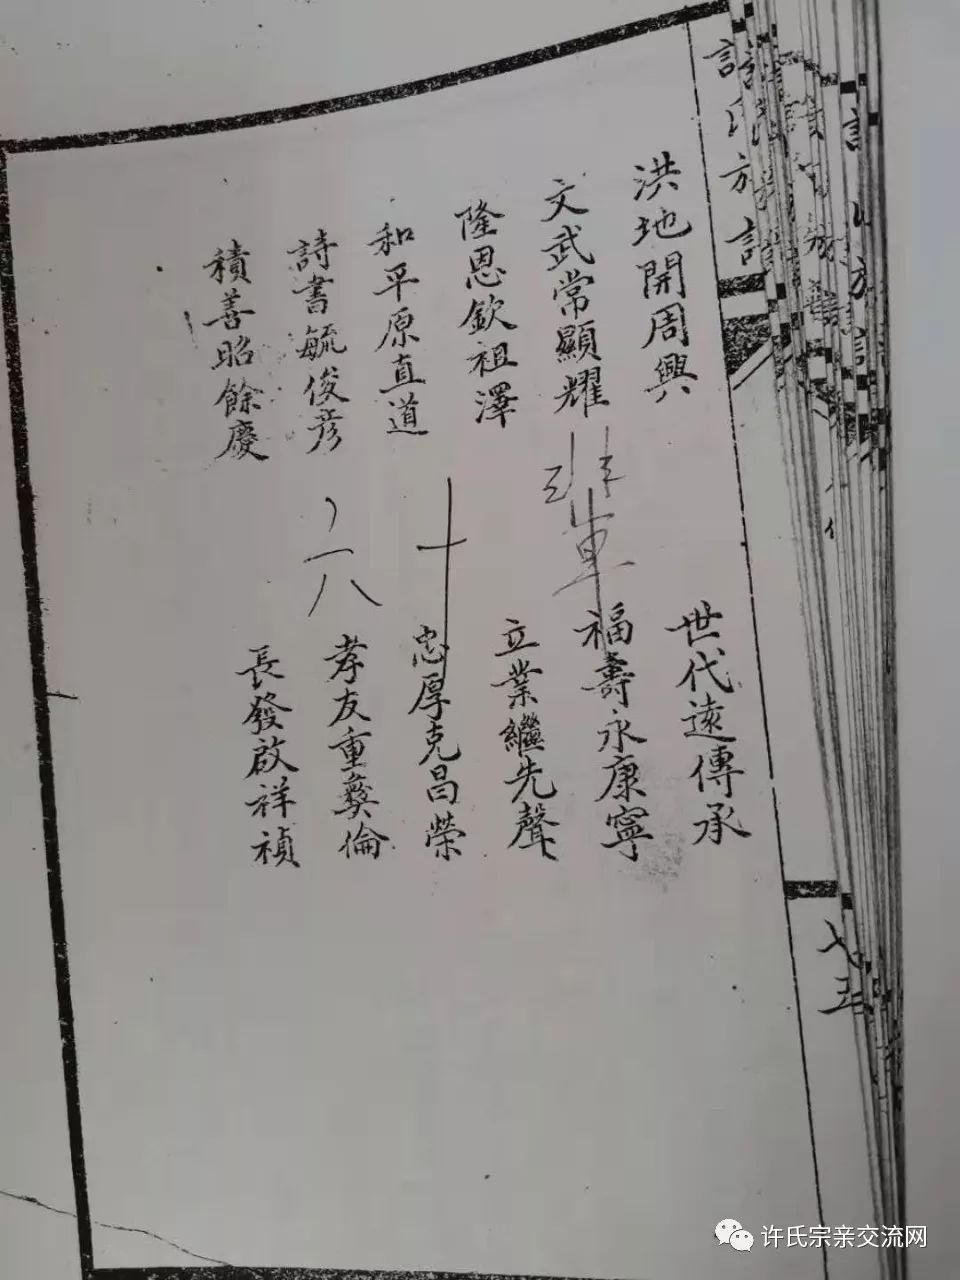 許氏族譜
洪地開周興
世代遠傳承
文武常顯耀
福壽永康寧
隆恩欽祖澤
立業繼先聲
和平原直道
忠厚克昌榮
詩書毓俊彦
孝友重彝倫
積善昭餘慶
長發啟祥禎
十
六
七五
许氏宗亲交流网